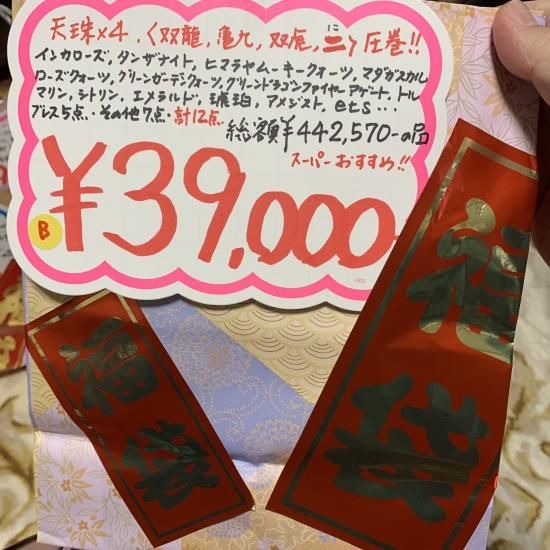 天珠×4.〈双龍,亀九,双虎,二〉圧巻!!
に
インカローズ,タンザナイト,ヒマラヤムーキークォーツ,マダガスカル
ローズクォーツ,グリーンガーデンクォーツ,グリーンドラゴンファイヤーアゲート,トル
マリン,シトリン,エメラルド,琥珀,アメジスト,ets...
ブレス5点.その他7点.計12点
総額¥442,570-の品
スーパーおすすめ!!
B
¥39,000-
福袋
福袋